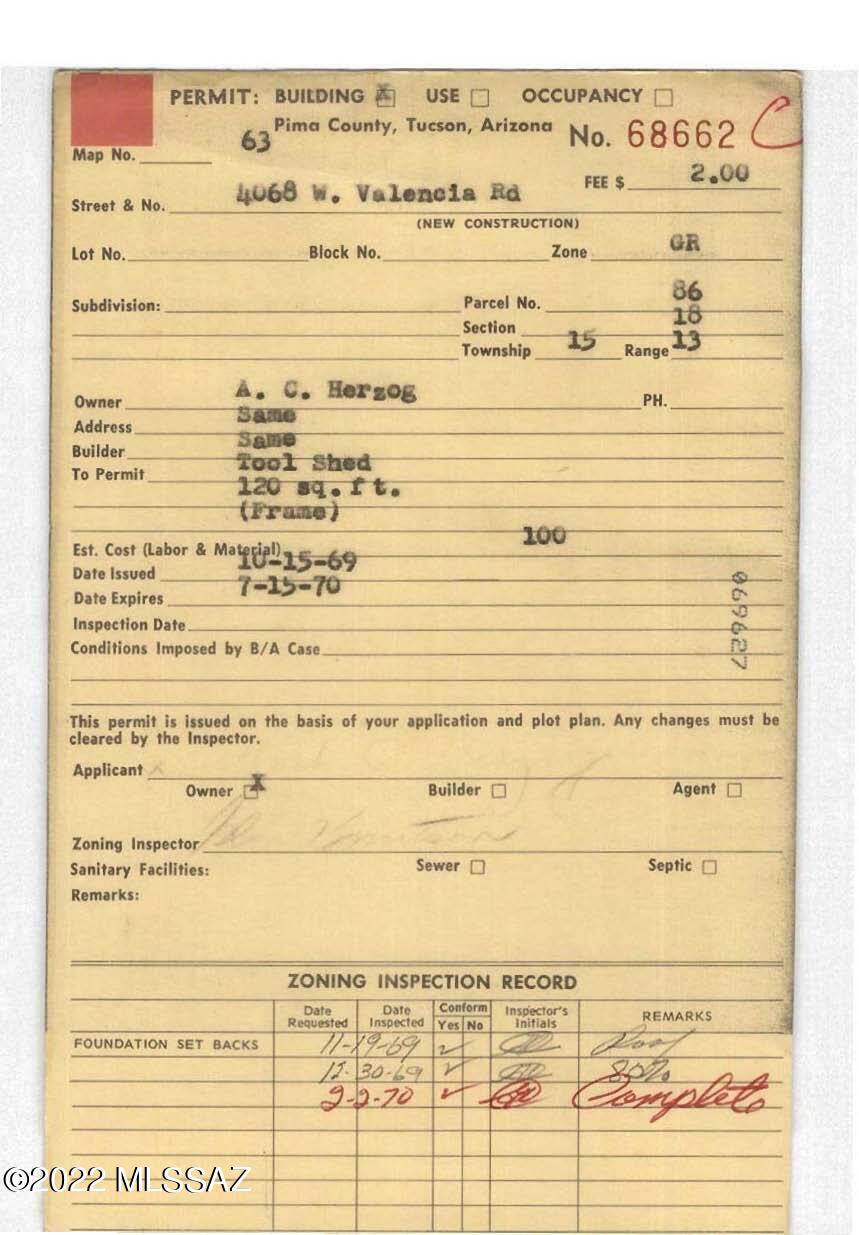 PERMIT: BUILDING X USE OCCUPANCY
63 Pima County, Tucson, Arizona No. 68662 C
Map No.
FEE $ 2.00
Street & No. 4068 W. Valencia Rd
(NEW CONSTRUCTION)
Lot No. Block No. Zone GR
Subdivision: Parcel No. 86
Section 18
Township 15 Range 13
Owner A. C. Herzog PH.
Address Same
Builder Same
To Permit Tool Shed
120 sq. ft.
(Frame)
Est. Cost (Labor & Material) 100
Date Issued 10-15-69
Date Expires 7-15-70
Inspection Date
069627
Conditions Imposed by B/A Case
This permit is issued on the basis of your application and plot plan. Any changes must be
cleared by the Inspector.
Applicant
Owner X Builder Agent
Zoning Inspector
Sanitary Facilities: Sewer Septic
Remarks:
ZONING INSPECTION RECORD
Date Requested Date Inspected Conform Yes No Inspector's Initials REMARKS
FOUNDATION SET BACKS 11-19-69 ✓
12-30-69 ✓ 80%
2-2-70 ✓ Complete
©2022 MLSSAZ